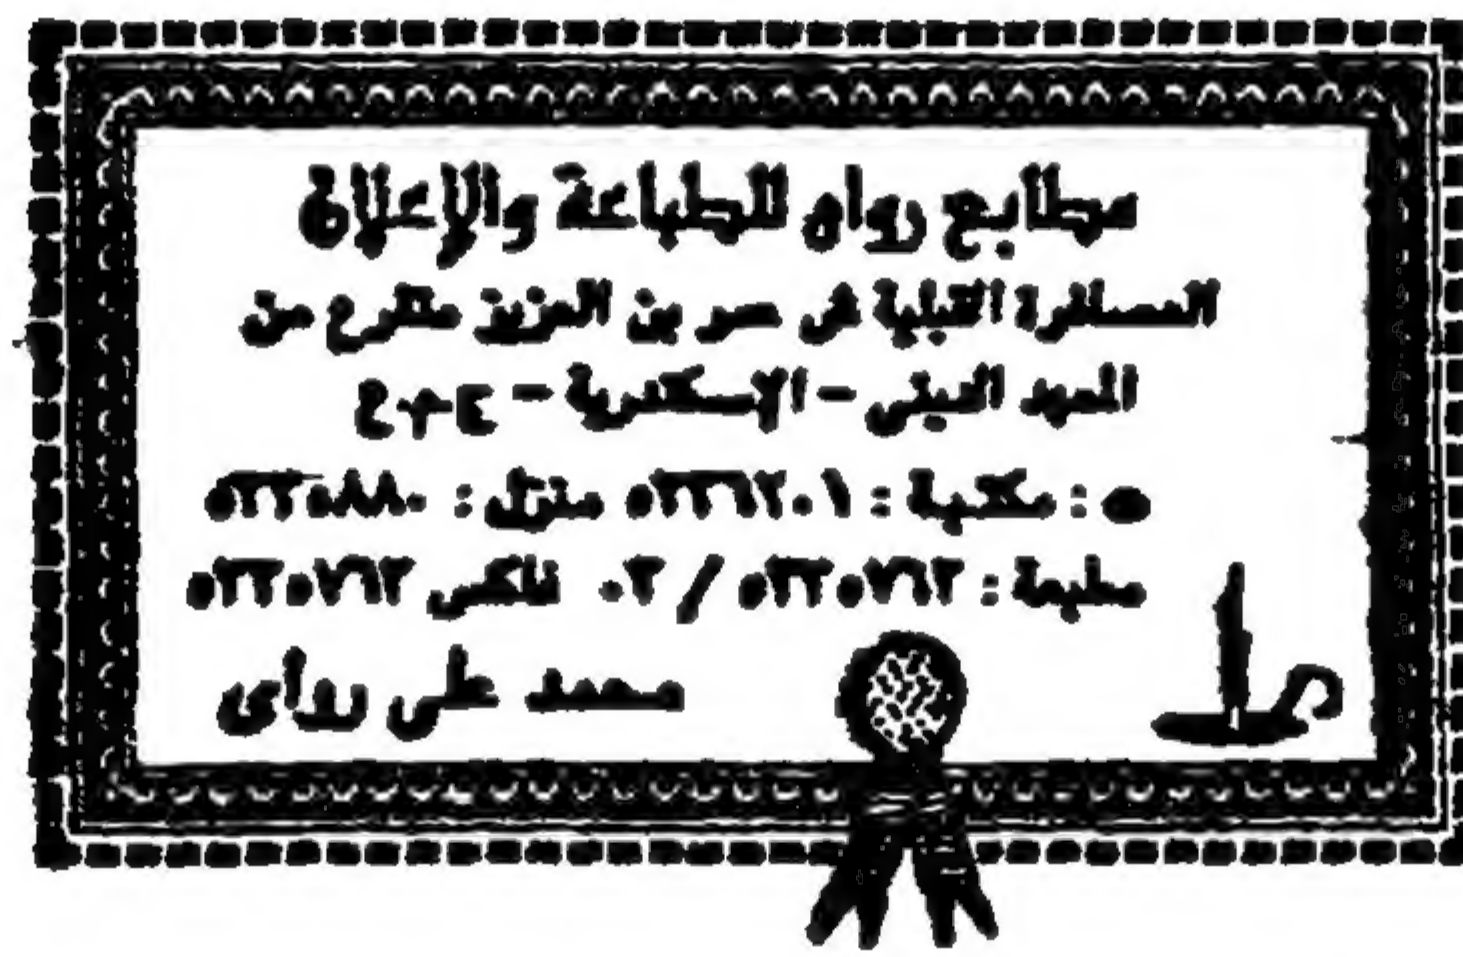 مطابع رواى للطباعة والإعلان
العصافرة القبلية ش عمر بن العزيز متفرع من
المعهد الدينى - الإسكندرية - ج م ع
: مكتبة : ٥٣٣٦٢٠١ منزل : ٥٣٣٥٨٨٠
مطبعة : ٥٣٣٥٧٦٣ / ٠٣ فاكس ٥٣٣٥٧٦٣
محمد على رواى